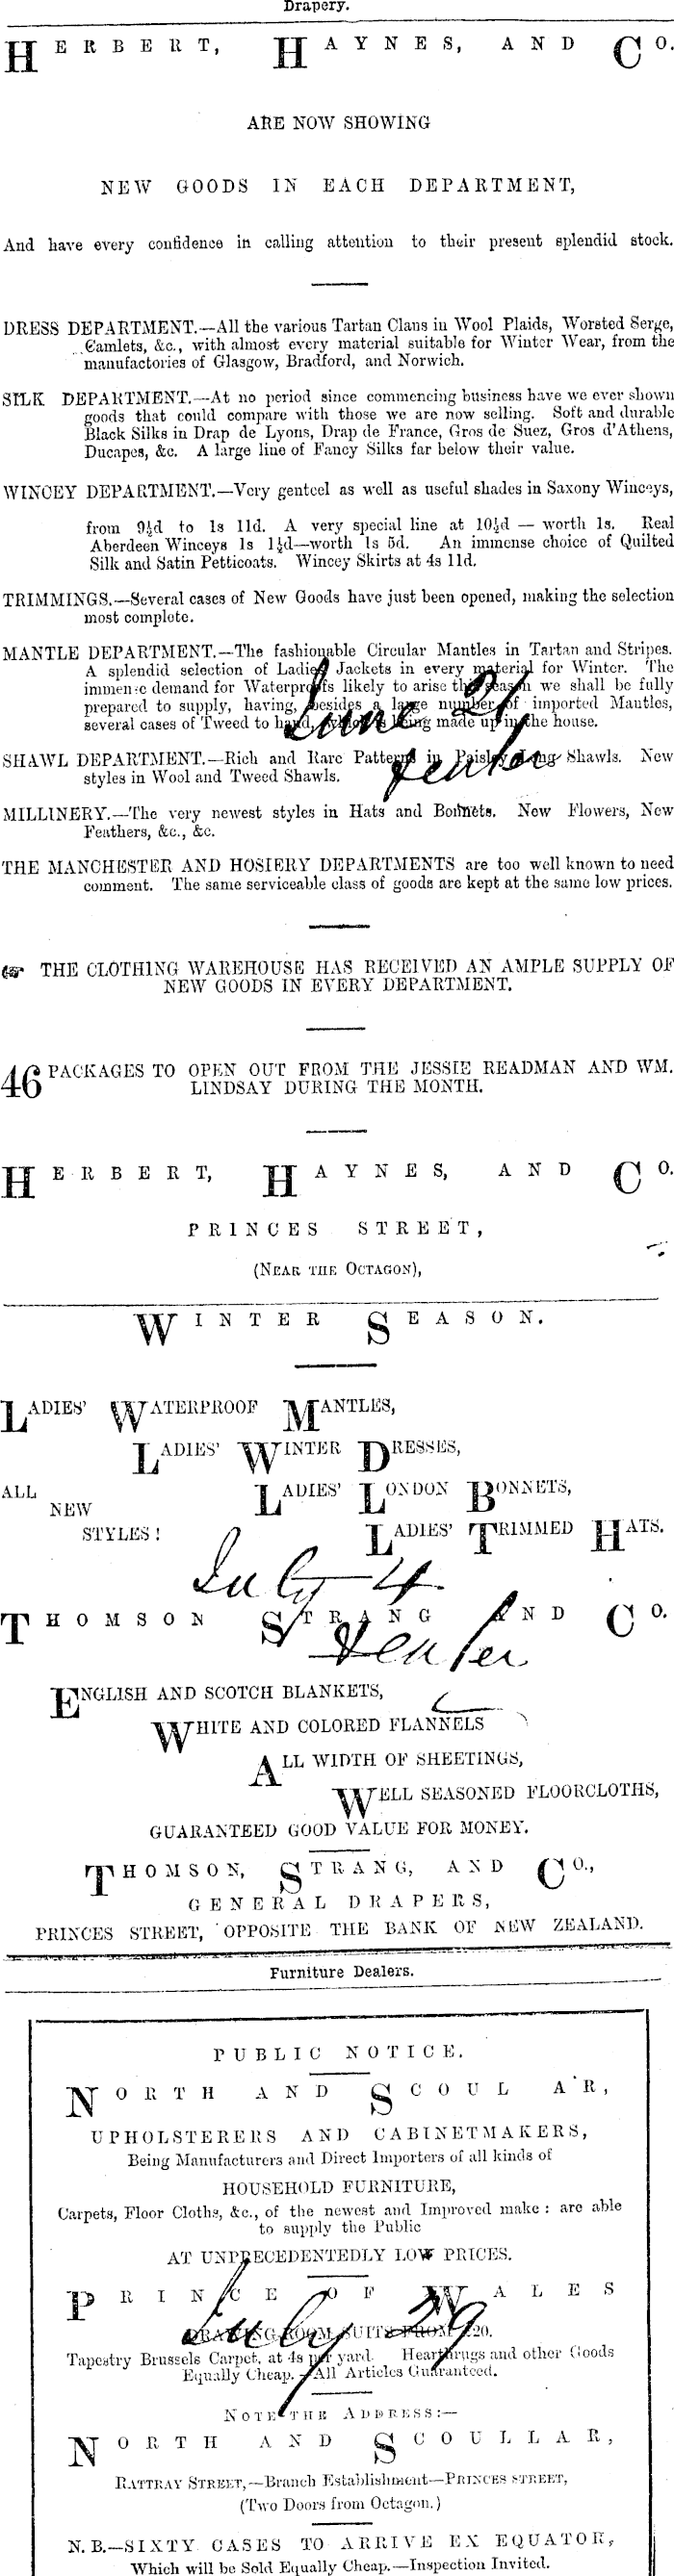 Drapery.
HERBERT, HAYNES, AND CO.
ARE NOW SHOWING
NEW GOODS IN EACH DEPARTMENT,
And have every confidence in calling attention to their present splendid stock.
DRESS DEPARTMENT.—All the various Tartan Clans in Wool Plaids, Worsted Serge,
Camlets, &c., with almost every material suitable for Winter Wear, from the
manufactories of Glasgow, Bradford, and Norwich.
SILK DEPARTMENT.—At no period since commencing business have we ever shown
goods that could compare with those we are now selling. Soft and durable
Black Silks in Drap de Lyons, Drap de France, Gros de Suez, Gros d'Athens,
Ducapes, &c. A large line of Fancy Silks far below their value.
WINCEY DEPARTMENT.—Very genteel as well as useful shades in Saxony Winceys,
from 9½d to 1s 11d. A very special line at 10½d — worth 1s. Real
Aberdeen Winceys 1s 1½d—worth 1s 5d. An immense choice of Quilted
Silk and Satin Petticoats. Wincey Skirts at 4s 11d.
TRIMMINGS.—Several cases of New Goods have just been opened, making the selection
most complete.
MANTLE DEPARTMENT.—The fashionable Circular Mantles in Tartan and Stripes.
A splendid selection of Ladies Jackets in every material for Winter. The
immense demand for Waterproofs likely to arise this season we shall be fully
prepared to supply, having, besides a large number of imported Mantles,
several cases of Tweed to hand, which is being made up in the house.
June 21
SHAWL DEPARTMENT.—Rich and Rare Patterns in Paisley Long Shawls. New
styles in Wool and Tweed Shawls.
MILLINERY.—The very newest styles in Hats and Bonnets. New Flowers, New
Feathers, &c., &c.
THE MANCHESTER AND HOSIERY DEPARTMENTS are too well known to need
comment. The same serviceable class of goods are kept at the same low prices.
☞ THE CLOTHING WAREHOUSE HAS RECEIVED AN AMPLE SUPPLY OF
NEW GOODS IN EVERY DEPARTMENT.
46 PACKAGES TO OPEN OUT FROM THE JESSIE READMAN AND WM.
LINDSAY DURING THE MONTH.
HERBERT, HAYNES, AND CO.
PRINCES STREET,
(NEAR THE OCTAGON),
WINTER SEASON.
LADIES' WATERPROOF MANTLES,
LADIES' WINTER DRESSES,
ALL LADIES' LONDON BONNETS,
NEW
STYLES! LADIES' TRIMMED HATS.
July 4
THOMSON STRANG AND CO.
ENGLISH AND SCOTCH BLANKETS,
WHITE AND COLORED FLANNELS
ALL WIDTH OF SHEETINGS,
WELL SEASONED FLOORCLOTHS,
GUARANTEED GOOD VALUE FOR MONEY.
THOMSON, STRANG, AND CO.,
GENERAL DRAPERS,
PRINCES STREET, OPPOSITE THE BANK OF NEW ZEALAND.
Furniture Dealers.
PUBLIC NOTICE.
NORTH AND SCOUL AR,
UPHOLSTERERS AND CABINETMAKERS,
Being Manufacturers and Direct Importers of all kinds of
HOUSEHOLD FURNITURE,
Carpets, Floor Cloths, &c., of the newest and Improved make: are able
to supply the Public
AT UNPRECEDENTEDLY LOW PRICES.
PRINCE OF WALES
DRAWING-ROOM SUITS FROM £20.
July 29
Tapestry Brussels Carpet, at 4s per yard. Hearthrugs and other Goods
Equally Cheap.—All Articles Guaranteed.
NOTE THE ADDRESS:—
NORTH AND SCOULLAR,
RATTRAY STREET,—Branch Establishment—PRINCES STREET,
(Two Doors from Octagon.)
N.B.—SIXTY CASES TO ARRIVE EX EQUATOR,
Which will be Sold Equally Cheap.—Inspection Invited.